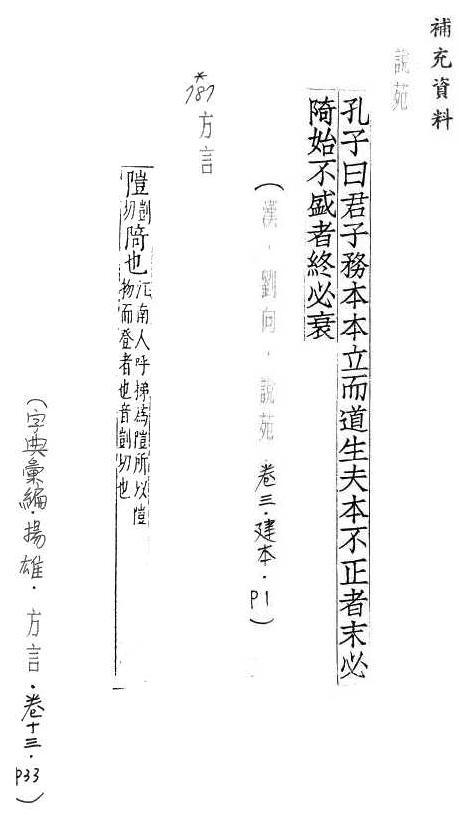 補充資料
說苑
孔子曰君子務本本立而道生夫本不正者末必
陭始不盛者終必衰
(漢.劉向.說苑 卷三.建本.P1)
方言
隑剴切陭也江南人呼梯為隑所以隑
物而登者也音剴切也
(字典彙編.揚雄.方言.卷十三.P33)